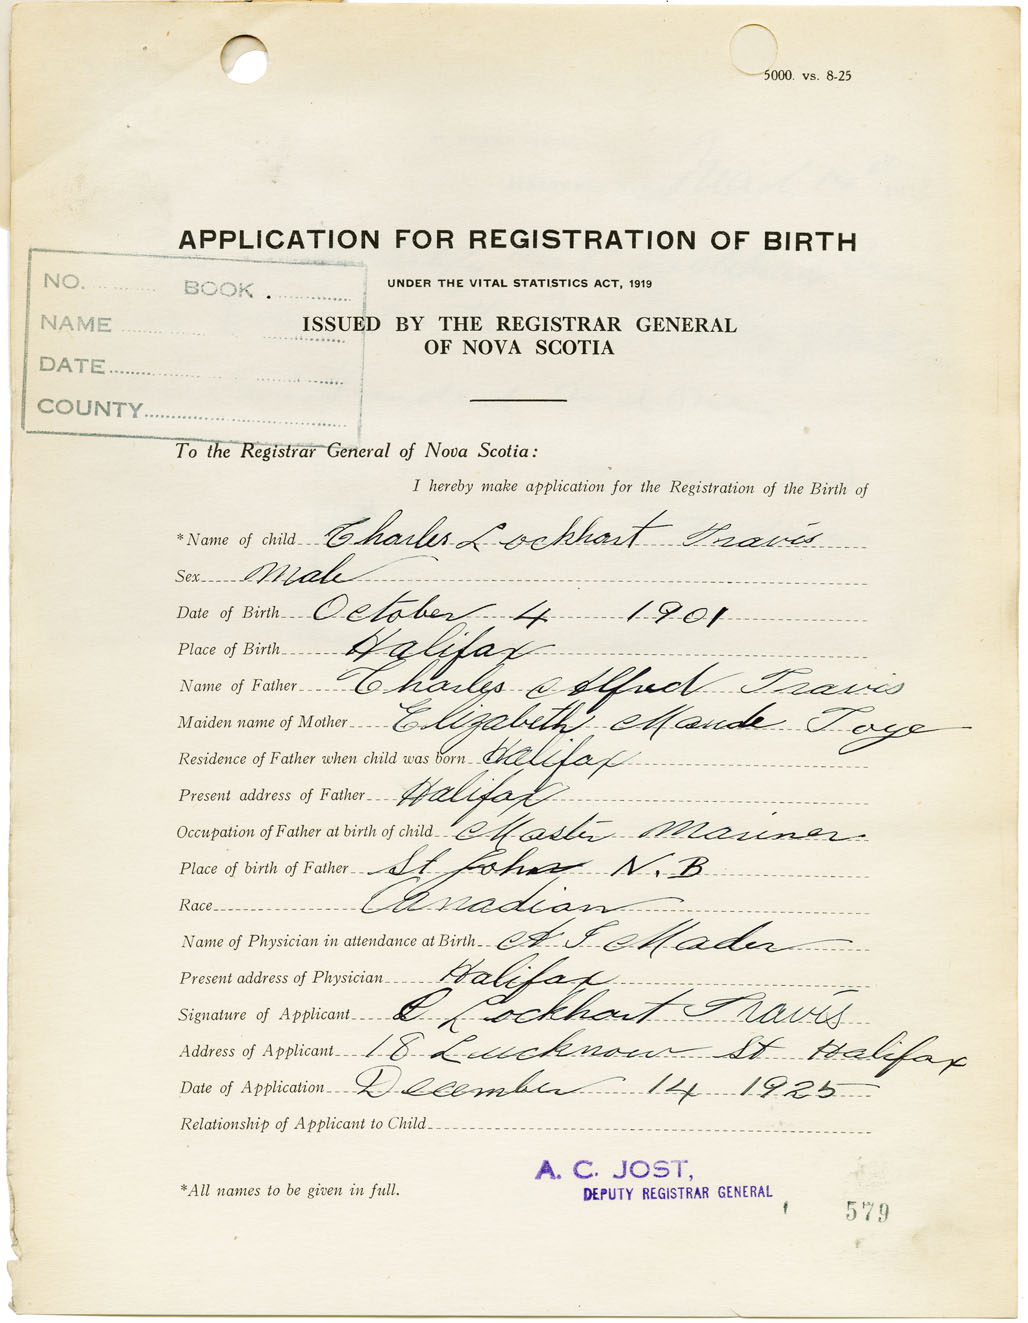 5000. vs. 8-25
APPLICATION FOR REGISTRATION OF BIRTH
UNDER THE VITAL STATISTICS ACT, 1919
NO. BOOK
NAME
DATE
COUNTY
ISSUED BY THE REGISTRAR GENERAL
OF NOVA SCOTIA
To the Registrar General of Nova Scotia:
I hereby make application for the Registration of the Birth of
*Name of child Charles Lockhart Travis
Sex Male
Date of Birth October 4 1901
Place of Birth Halifax
Name of Father Charles Alfred Travis
Maiden name of Mother Elizabeth Maude Toye
Residence of Father when child was born Halifax
Present address of Father Halifax
Occupation of Father at birth of child Master Mariner
Place of birth of Father St John N.B
Race Canadian
Name of Physician in attendance at Birth A I Mader
Present address of Physician Halifax
Signature of Applicant C Lockhart Travis
Address of Applicant 18 Lucknow St Halifax
Date of Application December 14 1925
Relationship of Applicant to Child
A. C. JOST,
*All names to be given in full. DEPUTY REGISTRAR GENERAL
579